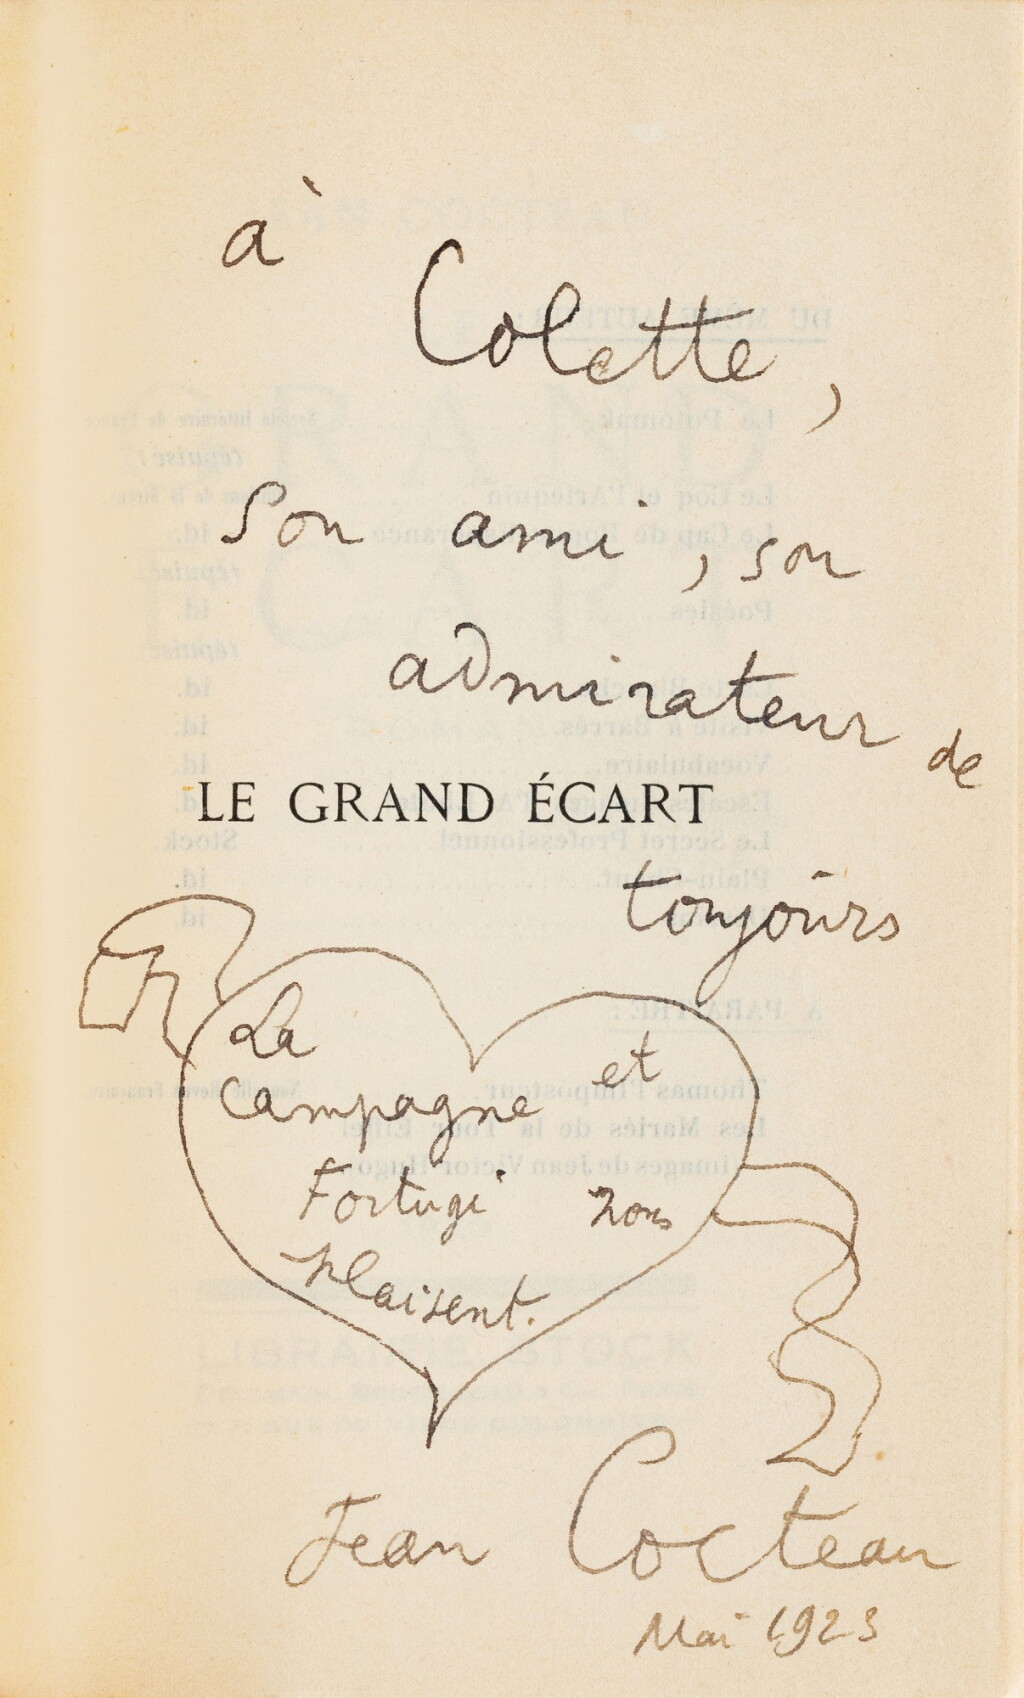 à
Colette,
Son ami, son
admirateur de
LE GRAND ÉCART
toujours
La
campagne et
Fortugi nous
plaisent.
Jean Cocteau
Mai 1923